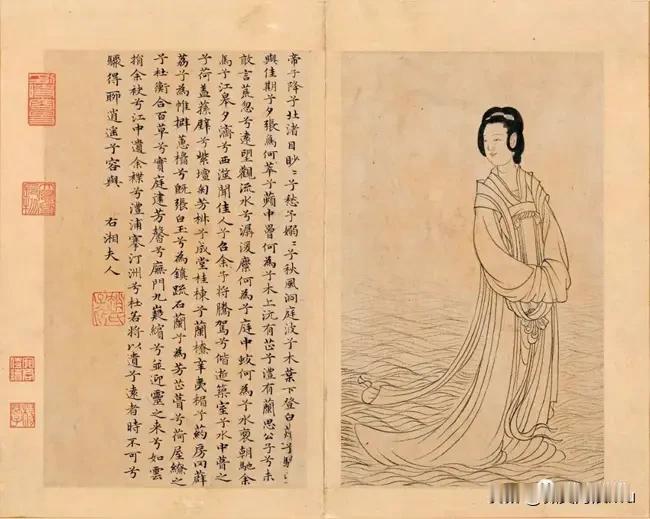 帝子降兮北渚目眇〻兮愁予嫋〻兮秋風洞庭波兮木葉下登白薠兮騁
與佳期兮夕張鳥何萃兮蘋中罾何為兮木上沅有芷兮澧有蘭思公子兮未
敢言荒忽兮遠望觀流水兮潺湲麋何為兮庭中蛟何為兮水裔朝馳余
馬兮江皋夕濟兮西澨聞佳人兮召余兮將騰駕兮偕逝築室兮水中葺之
兮荷蓋蓀壁兮紫壇匊芳椒兮成堂桂棟兮蘭橑辛夷楣兮葯房罔薜
荔兮為帷擗蕙櫋兮既張白玉兮為鎮疏石蘭兮為芳芷葺兮荷屋繚之
兮杜衡合百草兮實庭建芳馨兮廡門九嶷繽兮並迎靈之來兮如雲
捐余袂兮江中遺余褋兮澧浦搴汀洲兮杜若將以遺兮遠者時不可兮
驟得聊逍遙兮容與 右湘夫人